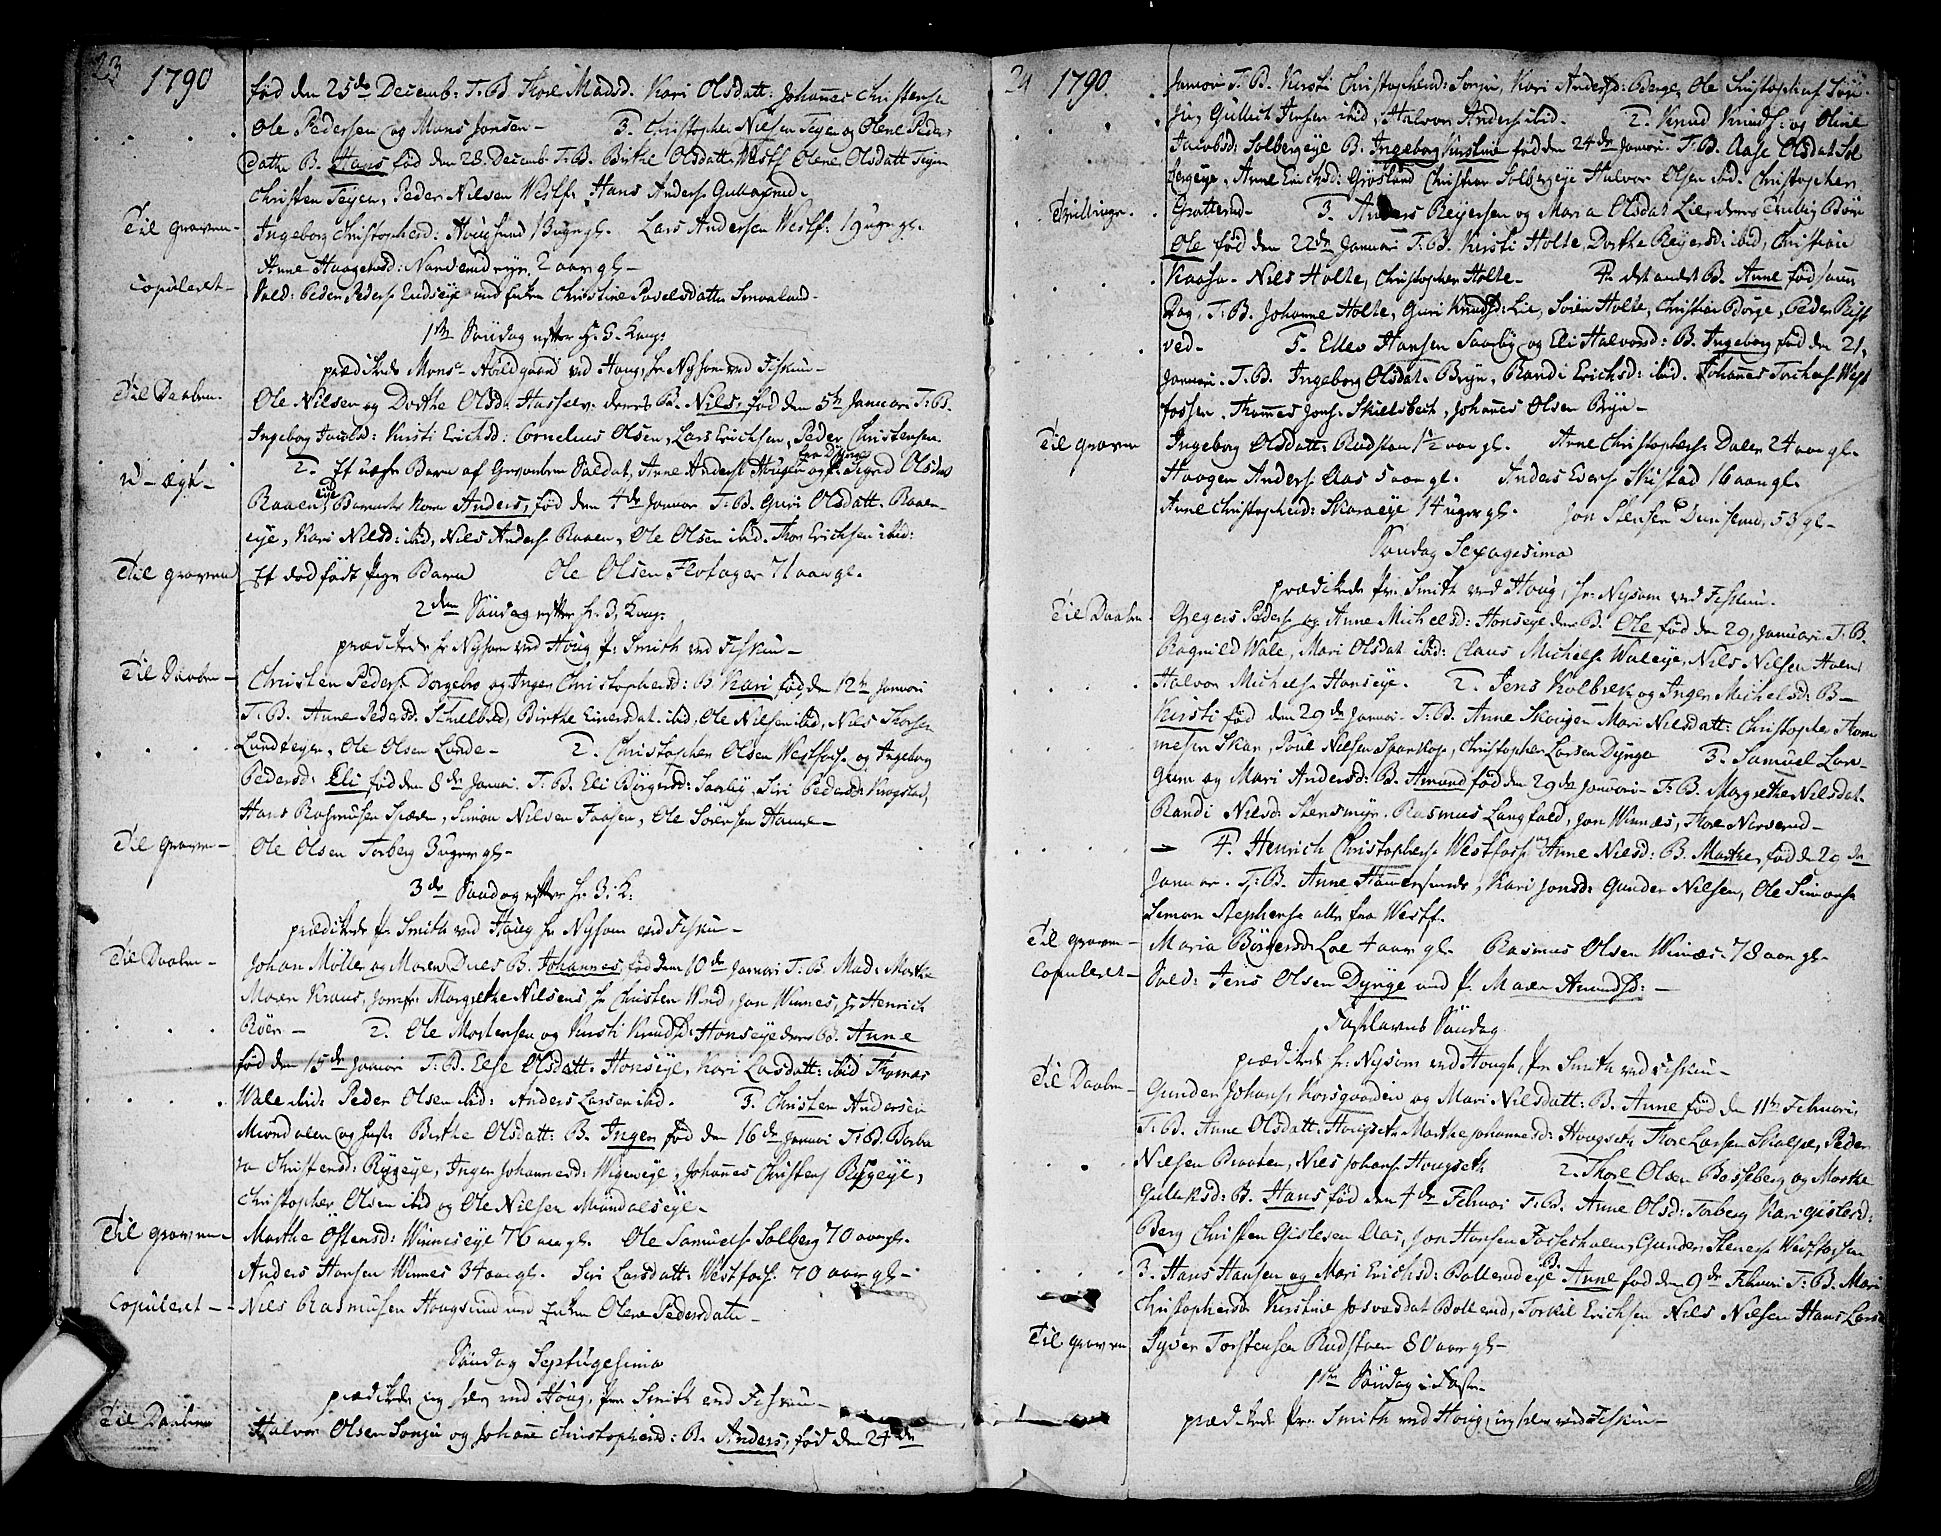 23 1790
fød den 25de Decemb: T: B. Thore Madsd. Kari Olsdatt: Johannes Christens:
Ole Pedersen og Mons Jonsen – 3. Christopher Nilsen Teÿen og Olene Peders
datte B. Hans fød den 28. Decemb. T: B. Birthe Olsdatt: Westf: Olene Olsdatt Teÿen
Christen Teÿen, Peder Nilsen Westf: Hans Anders:
Til graven – Ingeborg Christophersd: Hougsund 13 uger gl. Lars Andersen Westf: 19 uger gl.
Anne Haagensd: 2 aar gl –
Copuleret – Sold: Peder Peders: Endseÿe med Enken Christine Povelsdatter Smaaland –
1ste Søndag efter H. 3. Kong:
prædikede Mons: Abildgaard ved Houg, Hr Nÿsom ved Fiskum –
Til Daaben. Ole Nilsen og Dorthe Olsd: Hasselv: deres B. Nils, fød den 5te Januari T: B.
Ingeborg Jacobsd: Kirsti Erichsd: Cornelius Olsen, Lars Erichsen, Peder Christensen
u – ægte – 2. Et uægte Barn af Soldat, Anne Anders: og Sigrid Olsdat
Raaen eÿe, Barnets Navn Anders, fød den 4de Januar T: B. Guri Olsdatt. Raaen-
eÿe, Kari Nilsd: ibid, Nils Anders: Raaen, Ole Olsen ibid. Thor Erichsen ibid:
Til graven Et død født Pige Barn Ole Olsen Flotager 71 aar gl.
2den Søndag efter H: 3. Kong:
prædikede Hr Nÿsom ved Houg, Pr: Smith ved Fiskum –
Til Daaben – Christen Peders: Dorgebro og Inger Christophersd: B. Kari fød den 12te Januari
T. B. Anne Pedersd. Birthe Einersdat. ibid, Ole Nilsen ibid, Nils Thorsen
Lundteÿen, Ole Olsen Lunde – 2. Christopher Olsen Westfoss: og Ingeborg
Pedersd: Eli fød den 8de Januari. T. B. Eli Børgersd: Saasbÿ, Siri Pedersd: Krogstad,
Hans Rasmusen Skieren, Simon Nilsen Fossen, Ole Sørensen Hamre –
Til graven – Ole Olsen Torberg 3 uger gl –
3de Søndag efter H: 3: K:
prædikede Pr. Smith ved Houg Hr Nÿsom ved Fiskum –
Til Daaben – Johan Møller og Maren Dues B. Johannes, fød den 10de Januari T: B. Mad: Marthe
Maren Kraus, Jomfr: Margrethe Nilsens Hr Christen Wind, Jon Winnes, Hr Henrich
Röer – 2. Ole Mortensen og Kirsti Knudsd: Honseÿe deres B. Anne
fød den 15de Januari T: B. Else Olsdatt. Honseÿe, Kari Larsdatt: ibid Thomas
Wale ibid: Peder Olsen ibid: Anders Larsen ibid. 3. Christen Andersen
Miøndalen og Hust: Berthe Olsdatt: B. Inger fød den 16de Januari T: B. Barba
ra Christensd: Rÿgeÿe, Inger Johannesd: Johannes Christens: Rÿgeÿe,
Christopher Olsen ibid og Ole Nilsen Miøndalseÿe –
Til graven – Marthe Østensd: Winneseÿe 76 aar gl. Ole Samuels: Solberg 70 aar gl.
Anders Hansen Winnes 34 aar gl. Siri Larsdatt: Westfoss: 70 aar gl –
Copuleret – Nils Rasmusen Hougsund med Enken Olene Pedersdatter –
Søndag Septugesima
prædikede ieg selv ved Houg, Pr: Smith ved Fiskum –
Til Daaben Halvor Olsen Sonju og Johanne Christophersd: B. Anders, fød den 24de
24 1790.
Januari T. B. Kirsti Christophersd: Sonju, Kari Andersd: Berge, Ole Christophers: Son-
ju, Gullich Jensen ibid, Halvor Anders: ibid. 2. Knud Knuds: og Oline
Jacobsd: Solbergeÿe B. Ingeborg Kirstine fød den 24de Januari. T: B. Aase Olsdat Sol
bergeÿe, Anne Erichsd: Grøslund Christian Solbergeÿe Halvor Olsen ibid. Christopher
Trillinge. Grøtterud – 3. Anders Reÿersen og Maria Olsdat Lie, deres Trilling Børn
Ole fød den 22de Januari T: B. Kirsti Holte, Dorthe Reÿersd: ibid, Christian
Kaasa – Nils Holte, Christopher Holte – 4. det andet B. Anne fød samme
Dag. T: B. Johanne Holte, Guri Knudsd: Lie, Soren Holte, Christen Borge, Peder Rist
ved – 5. Ellev Hansen Saasbÿ og Eli Halvorsd: B. Ingeborg fød den 21.
Januari. T: B. Ingeborg Olsdat. Brÿn, Randi Erichsd: ibid. Johannes Torchels: West
fossen, Thomes Jons: Skielbech, Johannes Olsen Brÿn –
Til graven Ingeborg Olsdatt: Rudstan 1½ aar gl. Arne Christophers: Dalen 24 aar gl.
Haagen Anders: Aas 5 aar gl. Anders Evers: Skistad 16 aar gl.
Anne Christophersd: Skaraeÿe 14 uger gl. Jon Steensen 53 gl –
Søndag Sexagesima
prædikede Pr. Smith ved Houg, Hr: Nÿsom ved Fiskum.
Til Daaben – Gregers Peders: og Anne Michelsd: Honseÿe deres B. Ole fød den 29. Januari. T. B.
Ragnild Wale, Mari Olsdat ibid: Claus Michels: Waleÿe, Nils Nilsen Halen
Halvor Michels: Honseÿe. 2. Jens Kolbrek og Inger Michelsd: B –
Kirsti fød den 29de Januari. T: B. Anne Skougen Mari Nilsdatt: Christopher Thom
mesen Skar, Poul Nilsen Sparkop, Christopher Larsen Dÿnge 3. Samuel Lan-
gum og Mari Andersd: B. Amund fød den 29de Januari – T: B. Margrethe Nilsdat.
Randi Nilsd: Stensmÿr. Rasmus Langfald, Jon Winnes, Thore Narverud –
– 4. Henrich Christophers: Westfoss: Anne Nilsd: B. Marthe, fød d 29de
Januar. T: B. Anne Hammersunde, Kari Jonsd: Gunder Nilsen, Ole Simons:
Simon Stephens: alle fra Westf.
Til graven – Maria Børresd: Loe 4 aar gl. Rasmus Olsen Winnæs. 78 aar gl –
Copuleret – Sold: Jens Olsen Dÿnge med P. Maren Amundsd: –
Fastlavns Søndag
prædikede Hr: Nÿsom ved Hough, Pr: Smith ved Fiskum –
Til Daaben – Gunder Johans: Korsgaarden og Mari Nilsdatt: B. Anne fød den 11te Februari.
T: B. Anne Olsdatt: Hougseth Marthe Johannesd: Hougseth Thore Larsen Skalpe, Peder
Nilsen Braaten, Nils Johans: Hougseth 2. Thore Olsen Bosseberg og Marthe
Gulliksd: B. Hans fød den 4de Februari T: B. Anne Olsd: Torberg Kari Gislesd:
Berg Christen Gislesen Aas, Jon Hansen Fosseshalen, Gunder Stenes: Westfossen
3. Hans Hansen og Mari Erichsd: Bollerudeÿe B. Anne fød den 9de Februari T: B. Mari
Christophersd: Kirstine Josvasdat Bollerud, Torkil Erichsen Nils Nilsen Hans Lars:
Til graven Sÿver Torstensen Rudstaen 80 aar gl –
1ste Søndag i Faste –
prædikede Pr. Smith ved Houg, ieg selv ved Fiskum –